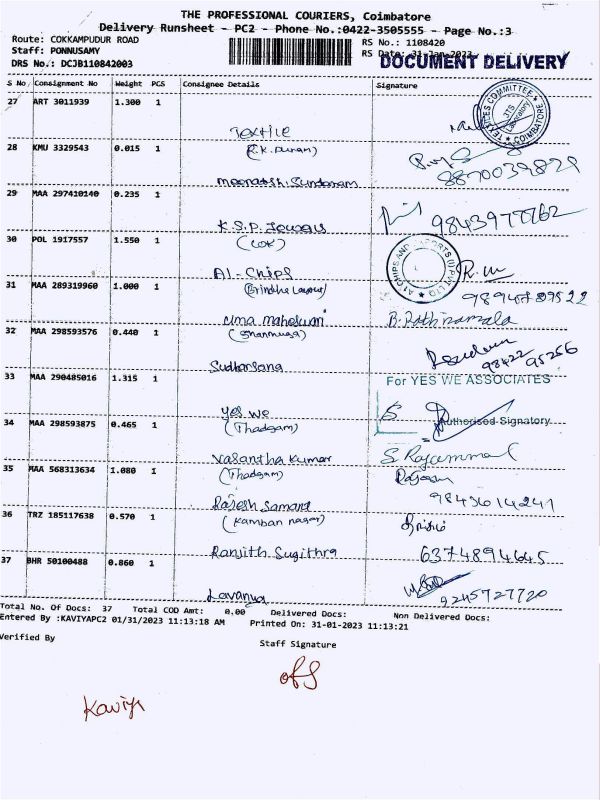 THE PROFESSIONAL COURIERS, Coimbatore
Delivery Runsheet - PC2 - Phone No.:0422-3505555 - Page No.:3
Route: COKKAMPUDUR ROAD
RS No.: 1108420
Staff: PONNUSAMY
RS Date: 31-Jan-2023
DRS No.: DCJB110842003
DOCUMENT DELIVERY
S No Consignment No Weight PCS Consignee Details Signature
27 ART 3011939 1.300 1
Textile
28 KMU 3329543 0.015 1
Meenatsh. Sundaram
8870039829
29 MAA 297410140 0.235 1
K.S.P. Jewels
9843977762
30 POL 1917557 1.550 1
A1-Chips
31 MAA 289319960 1.000 1
uma maheswari
B. Rathinamala
32 MAA 298593576 0.440 1
Sudharsana
98422 95256
33 MAA 290485016 1.315 1
For YES WE ASSOCIATES
Yes we
(Thadgam)
Authorised Signatory
34 MAA 298593875 0.465 1
Vasantha Kumar
(Thadgam)
S Rajammal
35 MAA 568313634 1.080 1
Rajesh Samana
(Kamban nagar)
36 TRZ 185117638 0.570 1
Ranjith Sugithra
6374894645
37 BHR 50100488 0.860 1
Lavanya
9245727720
Total No. Of Docs: 37 Total COD Amt: 0.00 Delivered Docs: Non Delivered Docs:
Entered By :KAVIYAPC2 01/31/2023 11:13:18 AM Printed On: 31-01-2023 11:13:21
Verified By
Staff Signature
Kaviya